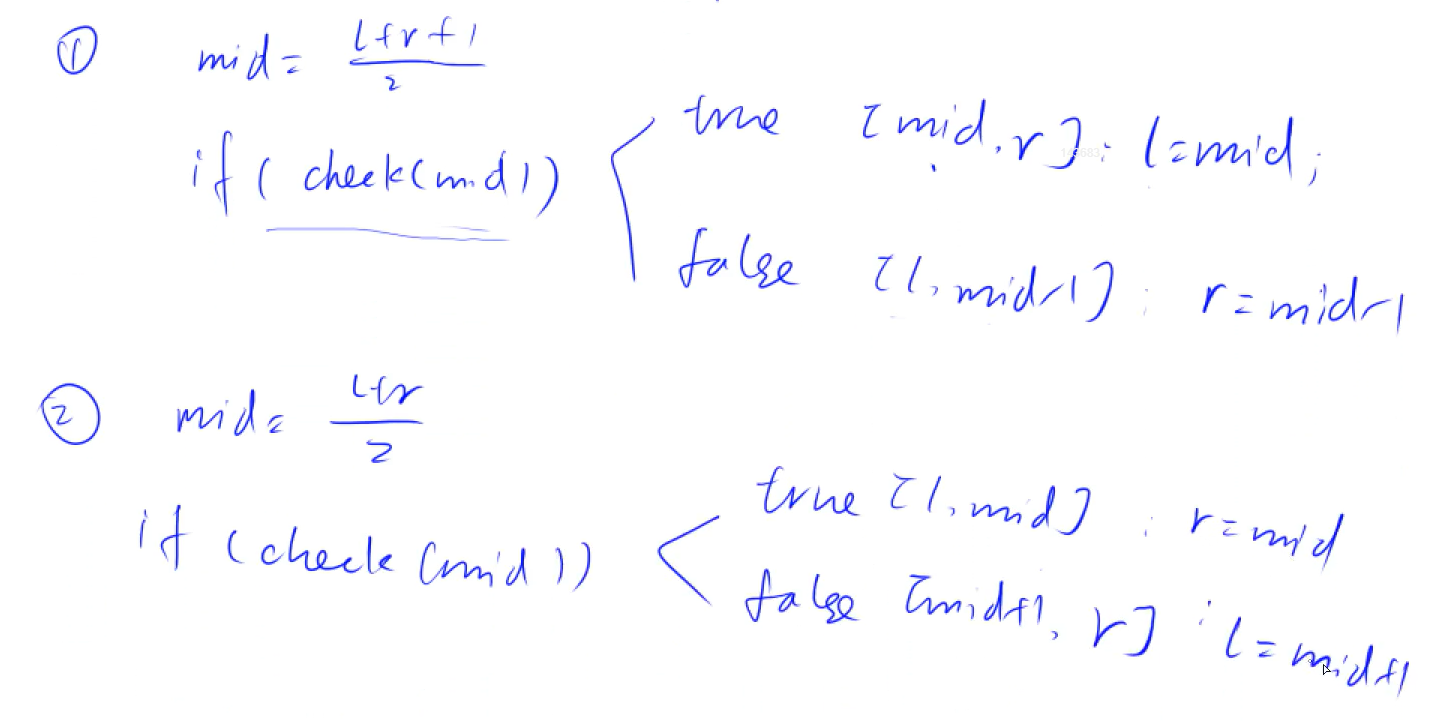 ① mid = (l+r+1)/2
if ( check(mid) ) true [mid, r]; l=mid;
false [l, mid-1]; r=mid-1
② mid = (l+r)/2
if (check (mid)) true [l, mid]; r=mid
false [mid+1, r]; l=mid+1